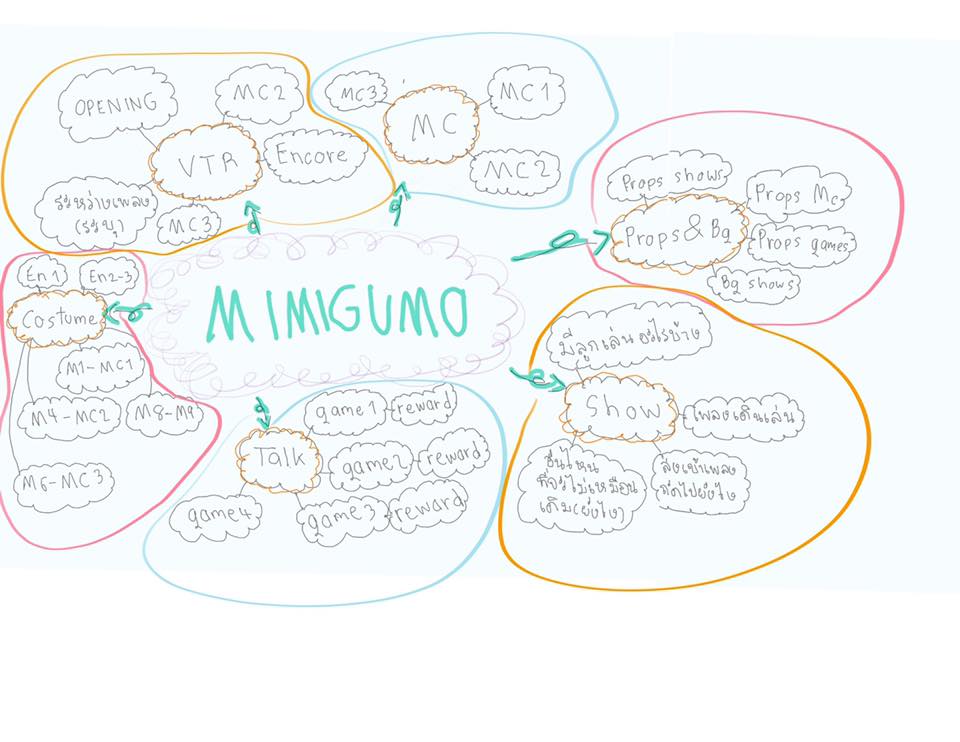 OPENING
MC2
VTR
Encore
ระหว่างเพลง
(ระบุ)
MC3
MC3
MC1
MC
MC2
Props shows
Props Mc
Props & Bg
Props games
Bg shows
En1
En2-3
Costume
M1-MC1
M4-MC2
M8-M9
M6-MC3
MIMIGUMO
game1
reward
Talk
game2
reward
game4
game3
reward
มีลูกเล่นอะไรบ้าง
Show
เพลงเดินเล่น
ขึ้นไหน
ที่จะไม่เหมือน
เดิม(ยังไง)
ส่งเข้าเพลง
ถัดไปยังไง